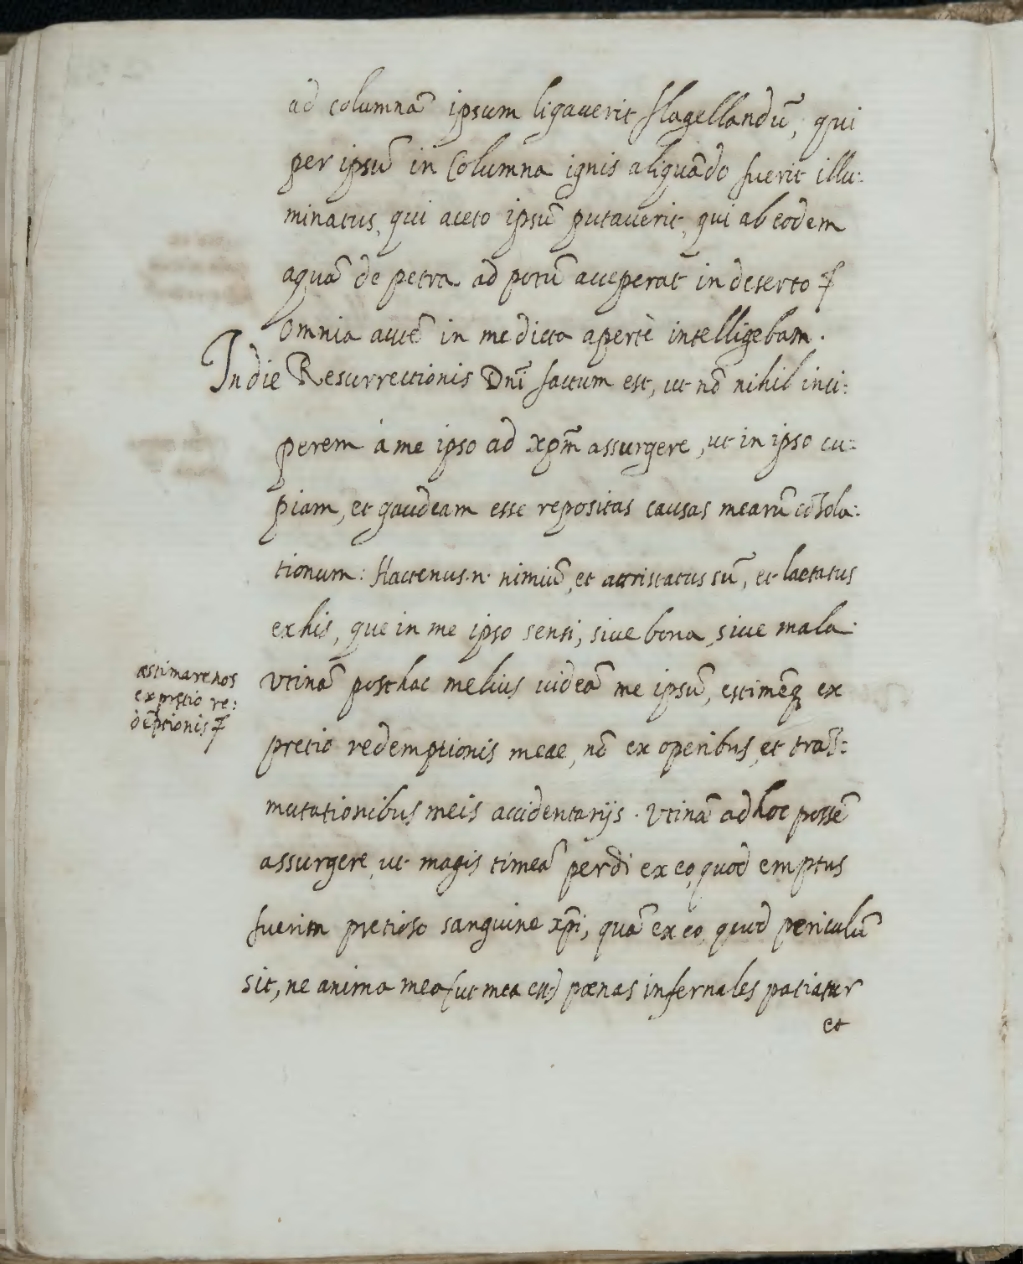 ad columnā ipsum ligauerit flagellandū, qui
per ipsū in Columna ignis aliquādo fuerit illu:
minatus, qui aceto ipsū putauerit, qui ab eodem
aquā de petra ad potū acceperat in deserto
Omnia autē in me dicta apertè intelligebam.
In die Resurrectionis Dnī factum est, ut nō nihil inci:
perem à me ipso ad xpm̄ assurgere, ut in ipso cu:
piam, et gaudeam esse repositas causas mearū cōsola:
tionum: Hactenus .n. nimiū, et attristatus sū, et laetatus
ex his, que in me ipso sensi, siue bona, siue mala.
æstimare nos
ex pretio re:
dēptionis
Vtinā posthac melius uideā me ipsū, estimēq ex
pretio redemptionis meae, nō ex operibus, et trās:
mutationibus meis accidentarijs. Vtinā ad hoc possē
assurgere, ut magis timeā perdi ex eo, quod emptus
fuerim pretioso sanguine xp̄i, quā ex eo, quod periculū
sit, ne anima mea (ut mea est) pœnas infernales patiatur
et